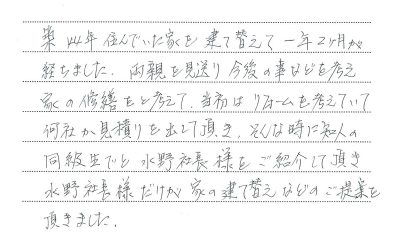 築44年住んでいた家を建て替えて一年2ヶ月が
経ちました。両親を見送り今後の事などを考え
家の修繕をと考えて、当初はリフォームを考えていて
何社か見積りを出して頂き、そんな時に知人の
同級生でと水野社長様をご紹介して頂き
水野社長様だけが家の建て替えなどのご提案を
頂きました。